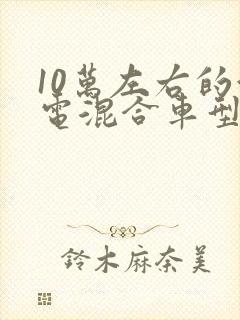 10萬左右的
電混合車型
鈴木麻奈美